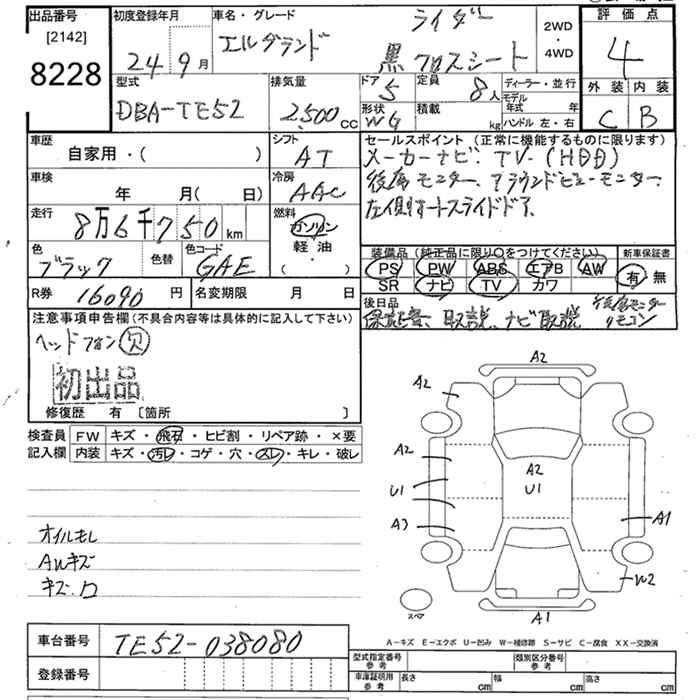 出品番号
[2142]
8228
初度登録年月
24年 9月
車名・グレード
エルグランド
ライダー
黒クロスシート
2WD
・
4WD
評価点
4
外装 内装
C B
型式
DBA-TE52
排気量
2,500cc
ドア
5
定員
8人
ディーラー・並行
モデル年式 年
形状
WG
積載
kg
ハンドル 左・右
車歴
自家用・( )
シフト
AT
車検
年 月( 日)
冷房
AAC
走行
8万6千750km
燃料
ガソリン
軽油
・
( )
色
ブラック
色替
色コード
GAE
R券
16090円
名変期限 月 日
セールスポイント(正常に機能するものに限ります)
メーカーナビ. TV.(HDD)
後席モニター、アラウンドビューモニター.
左側オートスライドドア.
装備品(純正品に限り○をつけてください)
PS PW ABS エアB AW
SR ナビ TV カワ
新車保証書
有・無
後日品
保証書、取説、ナビ取説
後席モニター
リモコン
注意事項申告欄(不具合内容等は具体的に記入して下さい)
ヘッドフォン欠
初出品
修復歴 有 〔箇所 〕
検査員
記入欄
FW キズ・飛石・ヒビ割・リペア跡・×要
内装 キズ・汚レ・コゲ・穴・スレ・キレ・破レ
オイルもレ
AWキズ
キズ.ロ
A2
A2
A2
A2
U1
U1
A3
A1
W2
A1
スペア
A−キズ E−エクボ U−凹み W−補修跡 S−サビ C−腐食 XX−交換済
車台番号
TE52-038080
登録番号
型式指定番号
参考
類別区分番号
参考
車庫証明用
参考
長さ cm
幅 cm
高さ cm